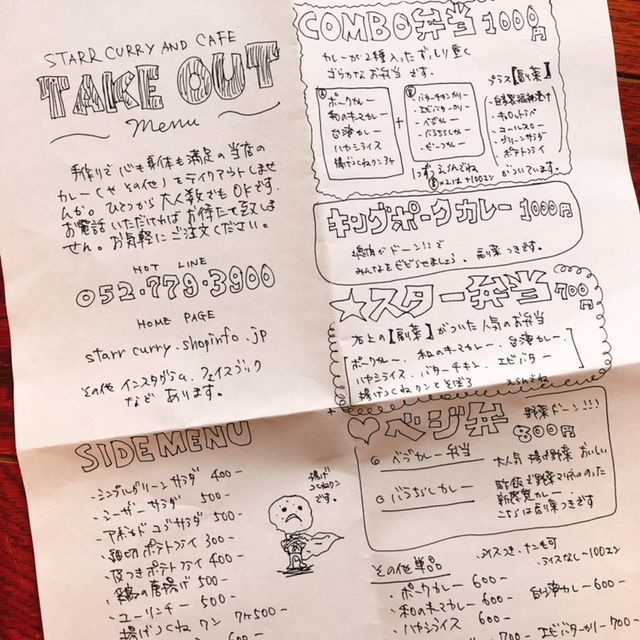 STARR CURRY AND CAFE
TAKE OUT
menu
手作りで心も身体も満足の当店の
カレー(やその他)をテイクアウトしませ
んか。ひとつから大人数でもOKです。
お電話いただければお待たせ致しま
せん。お気軽にご注文ください。
HOT LINE
052・779・3900
HOME PAGE
starr curry.shopinfo.jp
その他 インスタグラム、フェイスブック
など あります。
COMBO弁当 1000円
カレーが2種入ったずっしり重く
ゴウカなお弁当です。
ポークカレー
和のキーマカレー
台湾カレー
ハヤシライス
揚げつくねクン3ケ
+
バターチキンカリー
エビバターカリー
ベジカレー
ばらちらしカレー
ビーフカレー
プラス【副菜】
キャロットラペ
コールスロー
グリーンサラダ
ポテトフライ
がついています。
1つずつえらんでね
キングポークカレー 1000円
塊肉がドーン!!で
みんなをビビらせましょう。副菜つきです。
★スター弁当 700円
右上の【副菜】がついた人気のお弁当
ポークカレー、和のキーマカレー、台湾カレー
ハヤシライス、バターチキン、エビバター
揚げつくねクンとそぼろ えらんでね
♡ベジ弁 野菜ドーン!!! 800円
ベジカレー弁当 大人気 揚げ野菜 おいしい
ばらちらしカレー 酢飯で野菜てんこのった
新感覚カレー
こちらは副菜つきです
SIDE MENU
・シンプルグリーンサラダ 400-
・シーザーサラダ 500-
・アボカドユバサラダ 500-
・細切りポテトフライ 300-
・皮つきポテトフライ 400-
・鶏の唐揚げ 500-
・ユーリンチー 500-
・揚げつくねクン 7ケ500-
揚げ
つくねクン
です。
その他単品 ・ライスつき・ナンも可
・ライスなし-100エン
・ポークカレー 600-
・和のキーマカレー 600-
・ハヤシライス 600-
・台湾カレー 600-
・エビバターカリー 700-